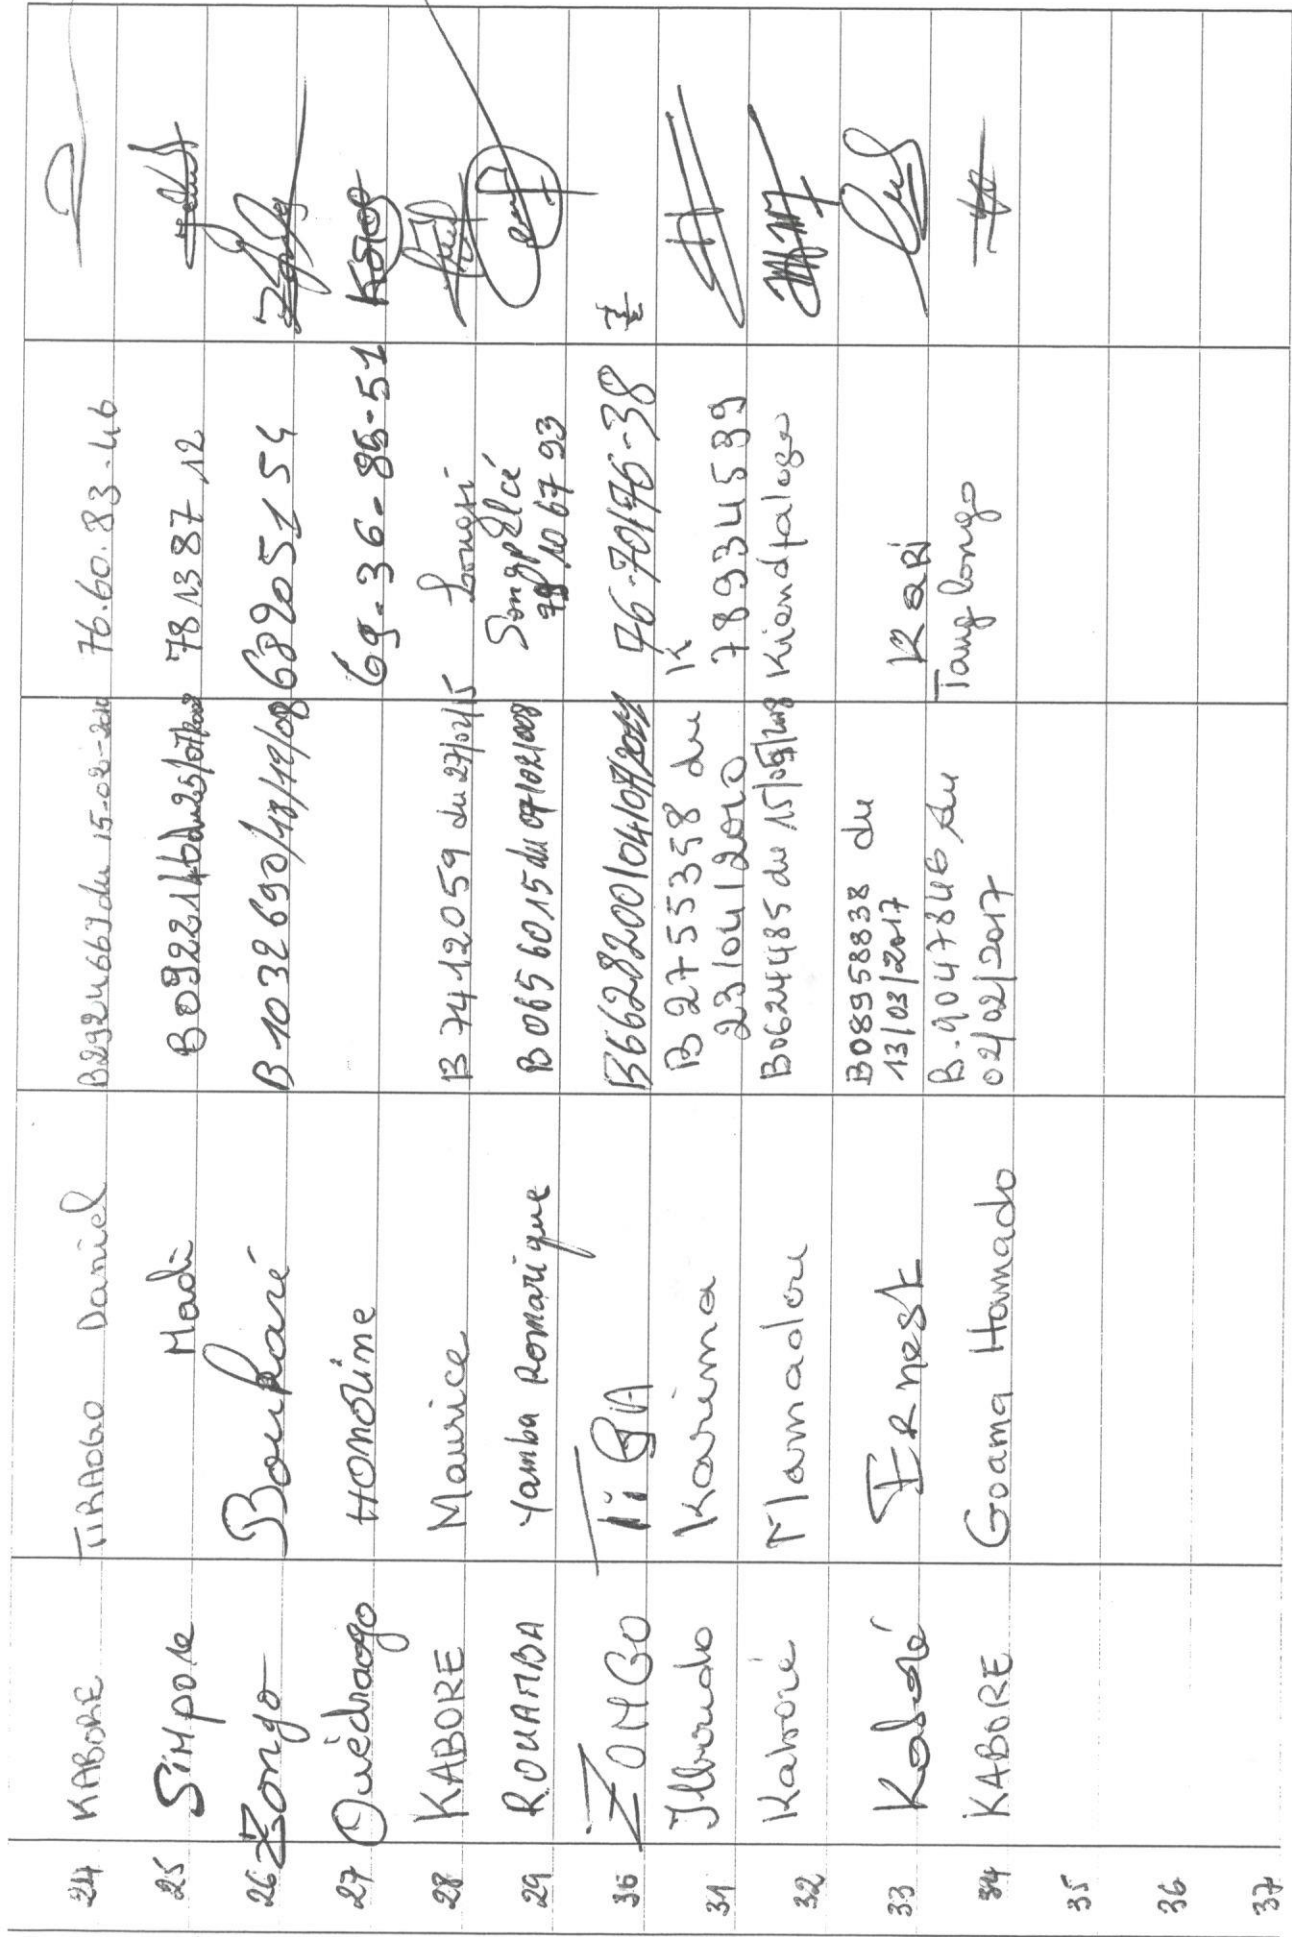 24 KABORE TIRAOGO Daniel B2924663 du 15-02-2010 76.60.83.46
25 Simpore Madi B0922146 du 25/07/2008 78 13 87 12
26 Zongo Boukaré B1032690/18/12/08 68905154
27 Ouédraogo HONORINE 69-36-85-51
28 KABORE Maurice B 7412059 du 27/02/15
29 ROUAMBA Yamba Romarique B0656015 du 07/02/008
78 10 67 93
30 ZONGO TiiGA B6628200/04/07/2014 76-70-76-38
31 Ilboudo Karima B 2755358 du K
23/04/2010 78934589
32 Kaboré Mamadou B0624485 du 15/05/2008 Kiendtaloga
33 Kaboré ERnest B08958838 du KARi
13/03/2017
34 KABORE Goama Hamado B.9047846 du Tanglongo
02/02/2017
35
36
37